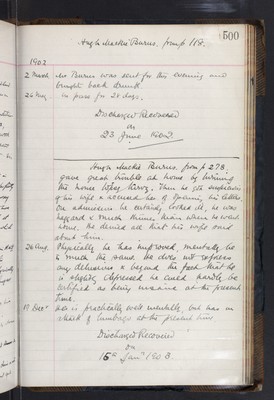 500
Hugh Martin Burns, from p 118.
1902
2 March. Mr Burns was sent for this evening and
brought back drunk.
24 May. on pass for 28 days.
Discharged Recovered
on
23 June 1902.
Hugh Martin Burns, from p 278.
gave great trouble at home by turning
the house upside . Then he got suspicious
of his wife & accused her of opening his letters.
On admission he certainly looked it, he was
haggard & much thinner than when he went
home. He denied all that his wife said
about him.
26 Aug. Physically he has improved, mentally he
is much the same. He does not express
any delusions & beyond the fact that he
is slightly depressed he could hardly be
certified as being insane at the present
time.
10 Dec. He is practically well mentally, but has an
attack of lumbago at the present time
Discharged Recovered
on
15th Jany 1903.